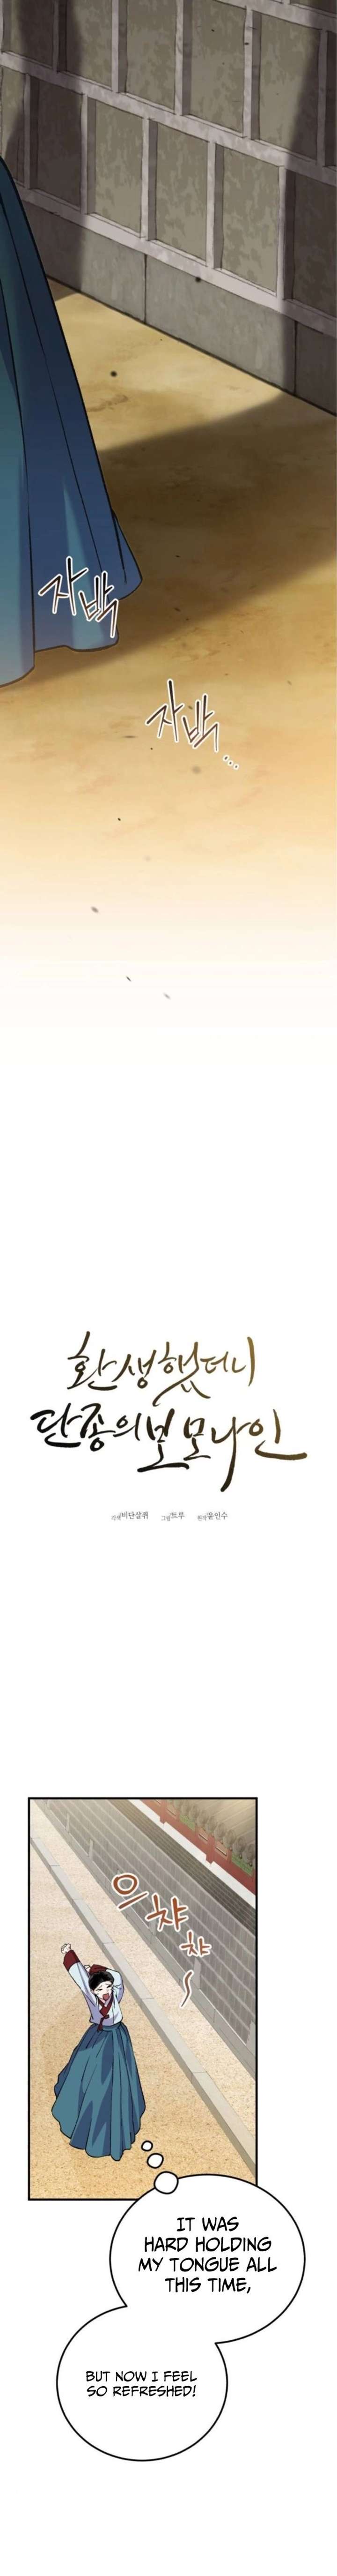 자박
자박...
환생했더니
단종의 보모나인
각색 비단살쾡 그림 트루 원작 윤인수
으
챠
챠
IT WAS
HARD HOLDING
MY TONGUE ALL
THIS TIME,
BUT NOW I FEEL
SO REFRESHED!